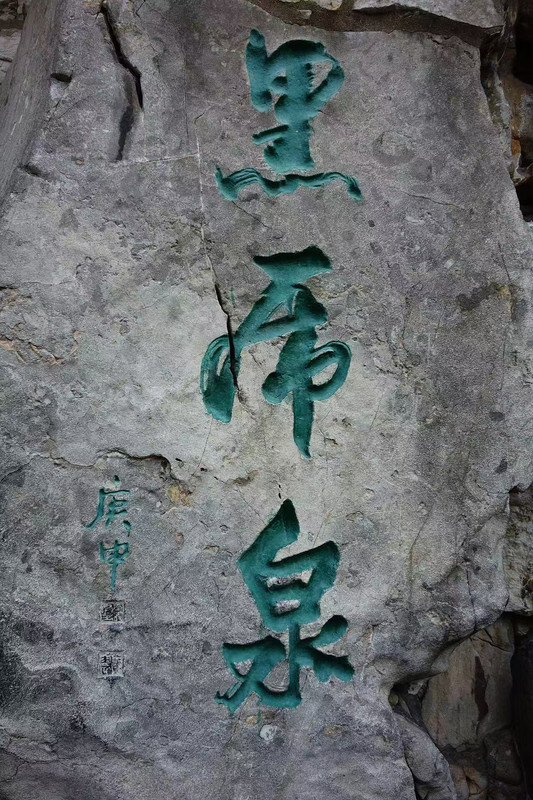 黑虎泉
庚申